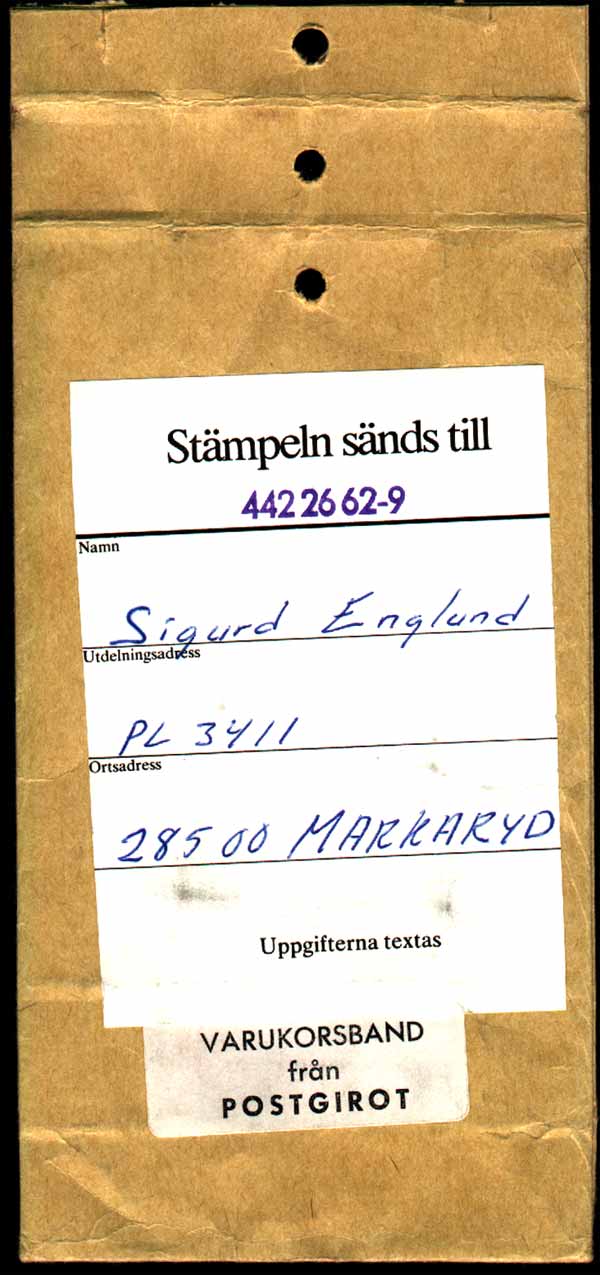 Stämpeln sänds till
442 26 62-9
Namn
Sigurd Englund
Utdelningsadress
PL 3411
Ortsadress
285 00 MARKARYD
Uppgifterna textas
VARUKORSBAND
från
POSTGIROT